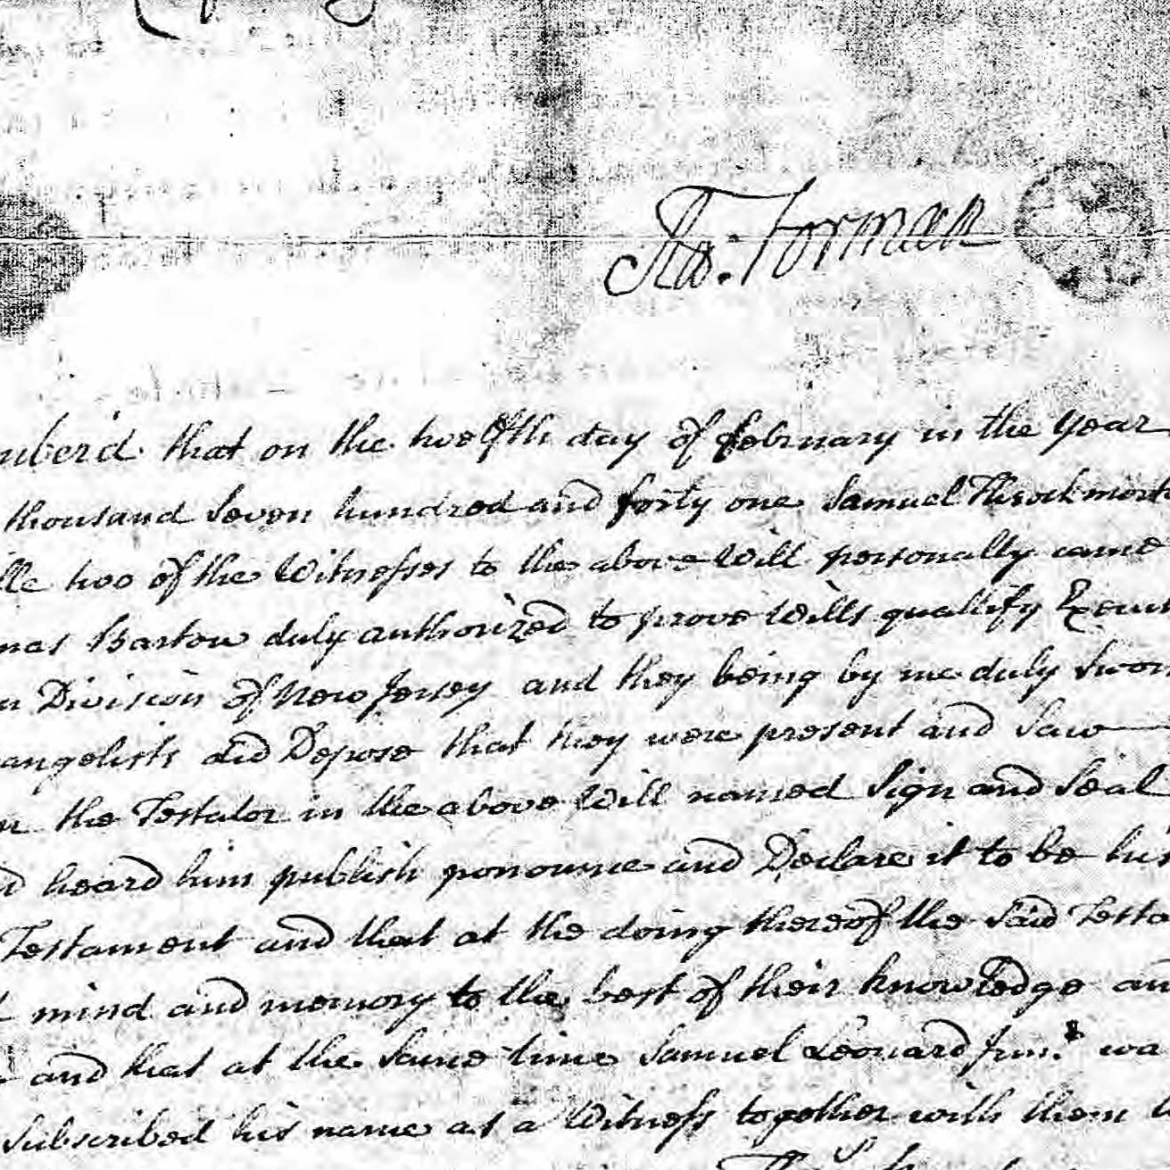 Tho: Forman
mberd that on the twelfth day of february in the year
thousand Seven hundred and forty one Samuel Throckmort
lle two of the Witnesses to the above Will personally came
mas Bartow duly authorized to prove Wills qualify Execut
n Division of New Jersey and they being by me duly Sworn
angelists did Depose that they were present and Saw
n the Testator in the above Will named Sign and Seal
d heard him publish ponounce and Declare it to be his
Testament and that at the doing thereof the Said Testa
mind and memory to the best of their knowledge an
and that at the Same time Samuel Leonard Junr wa
Subscribed his name as a Witness together with them